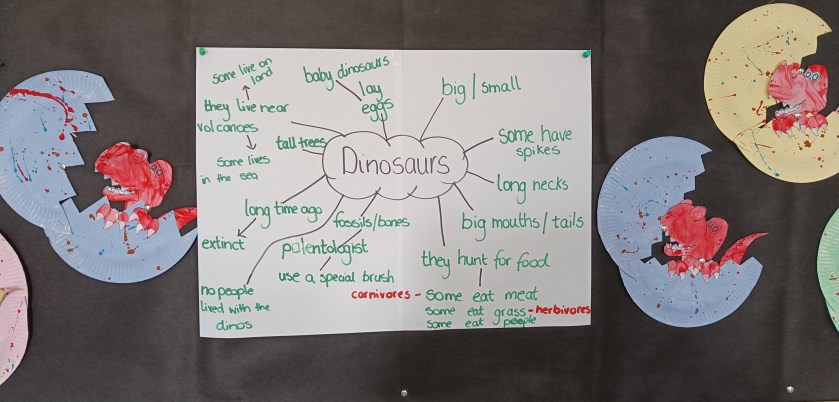 some live on
land
they live near
volcanoes
some lives
in the sea
baby dinosaurs
lay
eggs
tall trees
big / small
Dinosaurs
some have
spikes
long necks
big mouths / tails
long time ago
extinct
fossils/bones
palentologist
use a special brush
no people
lived with the
dinos
they hunt for food
carnivores - some eat meat
some eat grass - herbivores
some eat people